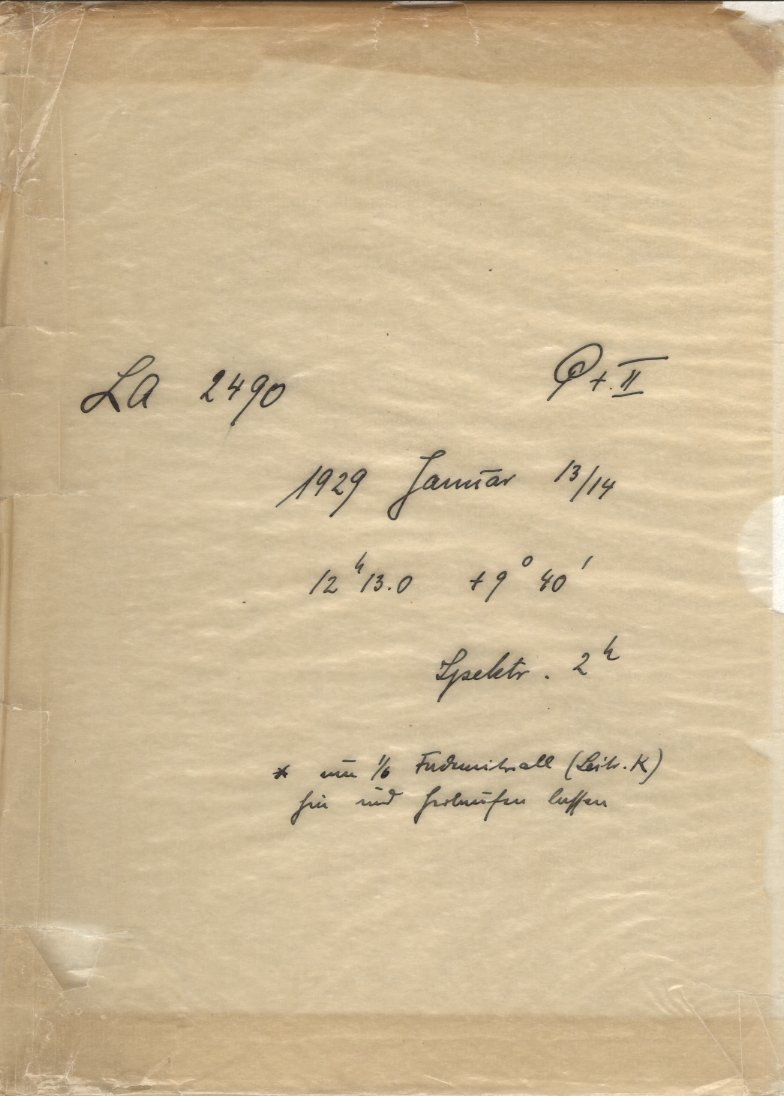 LA 2490 P + II
1929 Januar 13/14
12 h 13.0 +9° 40'
Spektr. 2 h
* um 1/6 Fadenintervall (Leitr. K)
hin und herlaufen lassen